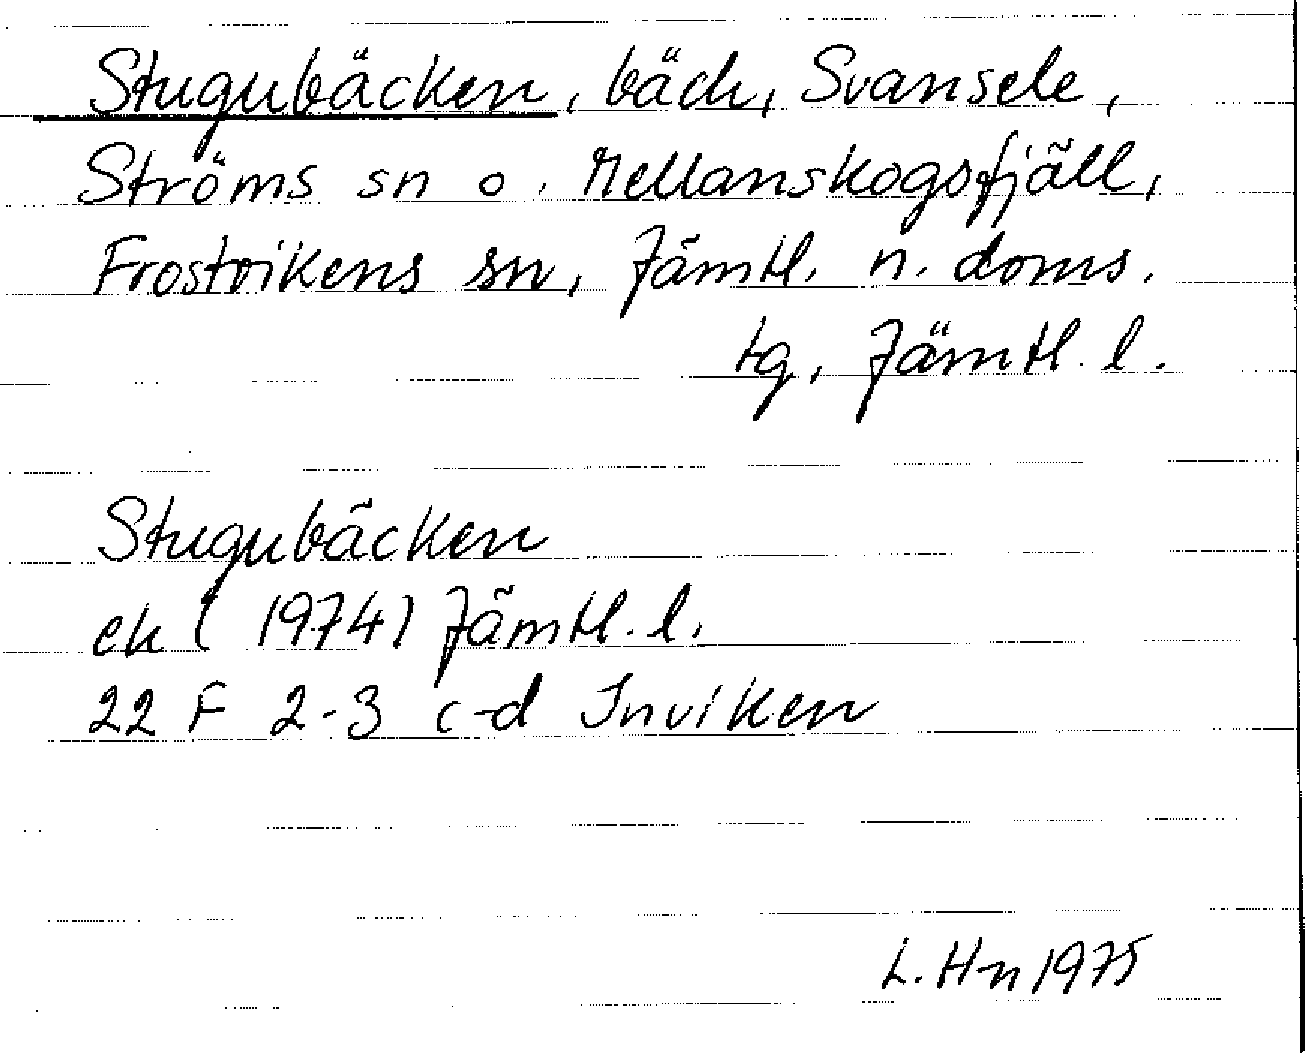 Stugubäcken, bäck, Svansele,
Ströms sn o. Mellanskogsfjäll,
Frostvikens sn, Jämtl. n. doms.
tg, Jämtl. l.
Stugubäcken
ek (1974) Jämtl. l.
22 F 2-3 c-d Inviken
L. Hn 1975